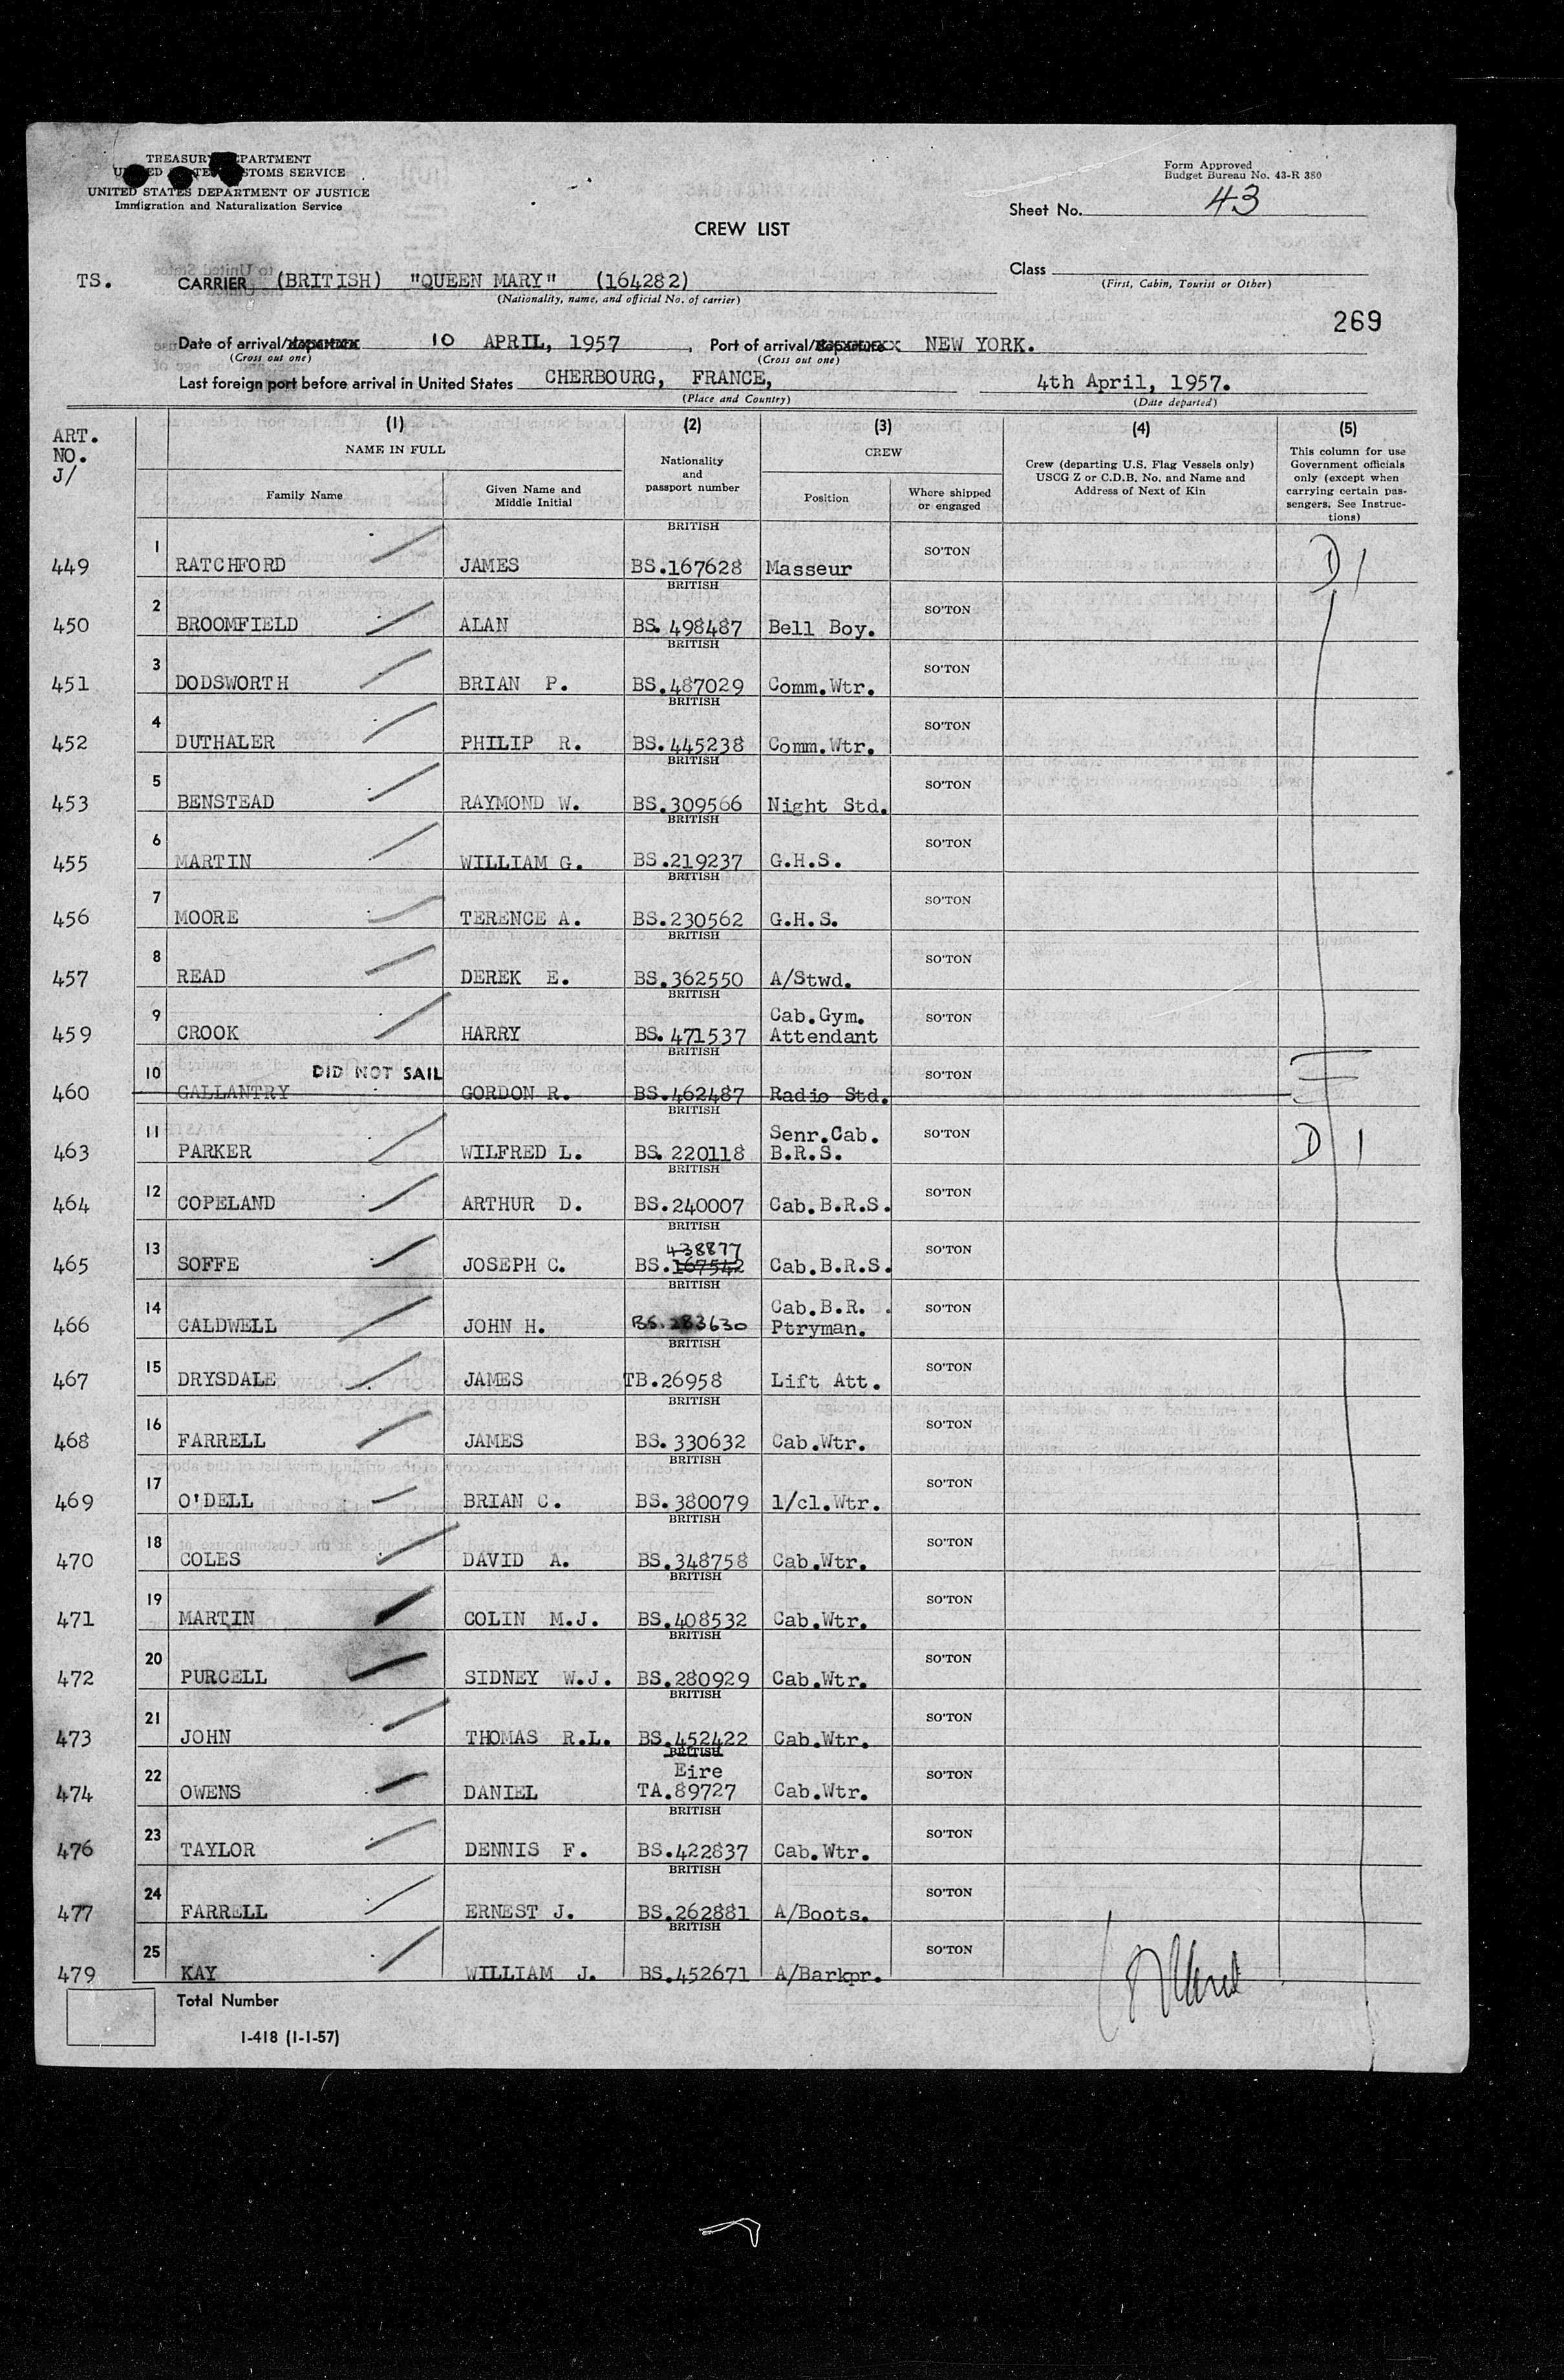 TREASURY DEPARTMENT
UNITED STATES CUSTOMS SERVICE
UNITED STATES DEPARTMENT OF JUSTICE
Immigration and Naturalization Service
Form Approved
Budget Bureau No. 43-R 380
Sheet No. 43
CREW LIST
Class
(First, Cabin, Tourist or Other)
TS. CARRIER (BRITISH) "QUEEN MARY" (164282)
(Nationality, name, and official No. of carrier)
269
Date of arrival/departure 10 APRIL, 1957, Port of arrival/departure NEW YORK.
(Cross out one) (Cross out one)
Last foreign port before arrival in United States CHERBOURG, FRANCE, 4th April, 1957.
(Place and Country) (Date departed)
ART. NO. J/
(1) NAME IN FULL
Family Name
Given Name and Middle Initial
(2) Nationality and passport number
(3) CREW
Position
Where shipped or engaged
(4) Crew (departing U.S. Flag Vessels only) USCG Z or C.D.B. No. and Name and Address of Next of Kin
(5) This column for use Government officials only (except when carrying certain passengers. See Instructions)
449 1 RATCHFORD JAMES BRITISH BS.167628 Masseur SO'TON D 1
450 2 BROOMFIELD ALAN BRITISH BS. 498487 Bell Boy. SO'TON
451 3 DODSWORTH BRIAN P. BRITISH BS.487029 Comm.Wtr. SO'TON
452 4 DUTHALER PHILIP R. BRITISH BS.445238 Comm.Wtr. SO'TON
453 5 BENSTEAD RAYMOND W. BRITISH BS.309566 Night Std. SO'TON
455 6 MARTIN WILLIAM G. BRITISH BS.219237 G.H.S. SO'TON
456 7 MOORE TERENCE A. BRITISH BS.230562 G.H.S. SO'TON
457 8 READ DEREK E. BRITISH BS.362550 A/Stwd. SO'TON
459 9 CROOK HARRY BRITISH BS. 471537 Cab.Gym. Attendant SO'TON
460 10 DID NOT SAIL GALLANTRY GORDON R. BRITISH BS.462487 Radio Std. SO'TON
463 11 PARKER WILFRED L. BRITISH BS. 220118 Senr.Cab. B.R.S. SO'TON D 1
464 12 COPELAND ARTHUR D. BRITISH BS.240007 Cab.B.R.S. SO'TON
465 13 SOFFE JOSEPH C. BRITISH 438877 BS.167542 Cab.B.R.S. SO'TON
466 14 CALDWELL JOHN H. BRITISH BS.283630 Cab.B.R. Ptryman. SO'TON
467 15 DRYSDALE JAMES BRITISH TB.26958 Lift Att. SO'TON
468 16 FARRELL JAMES BRITISH BS. 330632 Cab.Wtr. SO'TON
469 17 O'DELL BRIAN C. BRITISH BS.380079 1/cl.Wtr. SO'TON
470 18 COLES DAVID A. BRITISH BS.348758 Cab.Wtr. SO'TON
471 19 MARTIN COLIN M.J. BRITISH BS.408532 Cab.Wtr. SO'TON
472 20 PURCELL SIDNEY W.J. BRITISH BS.280929 Cab.Wtr. SO'TON
473 21 JOHN THOMAS R.L. BRITISH BS.452422 Cab.Wtr. SO'TON
474 22 OWENS DANIEL BRITISH Eire TA.89727 Cab.Wtr. SO'TON
476 23 TAYLOR DENNIS F. BRITISH BS.422837 Cab.Wtr. SO'TON
477 24 FARRELL ERNEST J. BRITISH BS.262881 A/Boots. SO'TON
479 25 KAY WILLIAM J. BRITISH BS.452671 A/Barkpr. SO'TON
Total Number
I-418 (1-1-57)